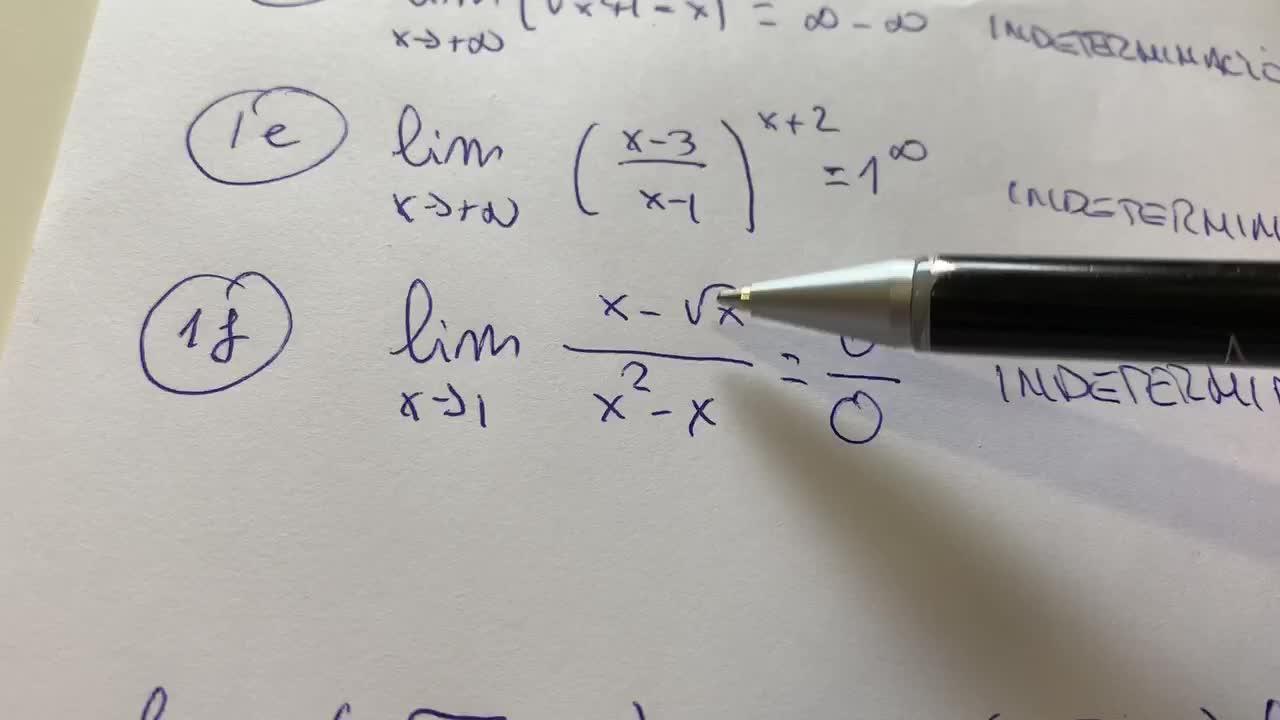 [√x+1 - x] = ∞ - ∞ INDETERMINACIÓ
x→+∞
1e lim (x-3/x-1)^x+2 = 1^∞ INDETERMIN
x→+∞
1f lim x - √x / x² - x = 0/0 INDETERMI
x→1